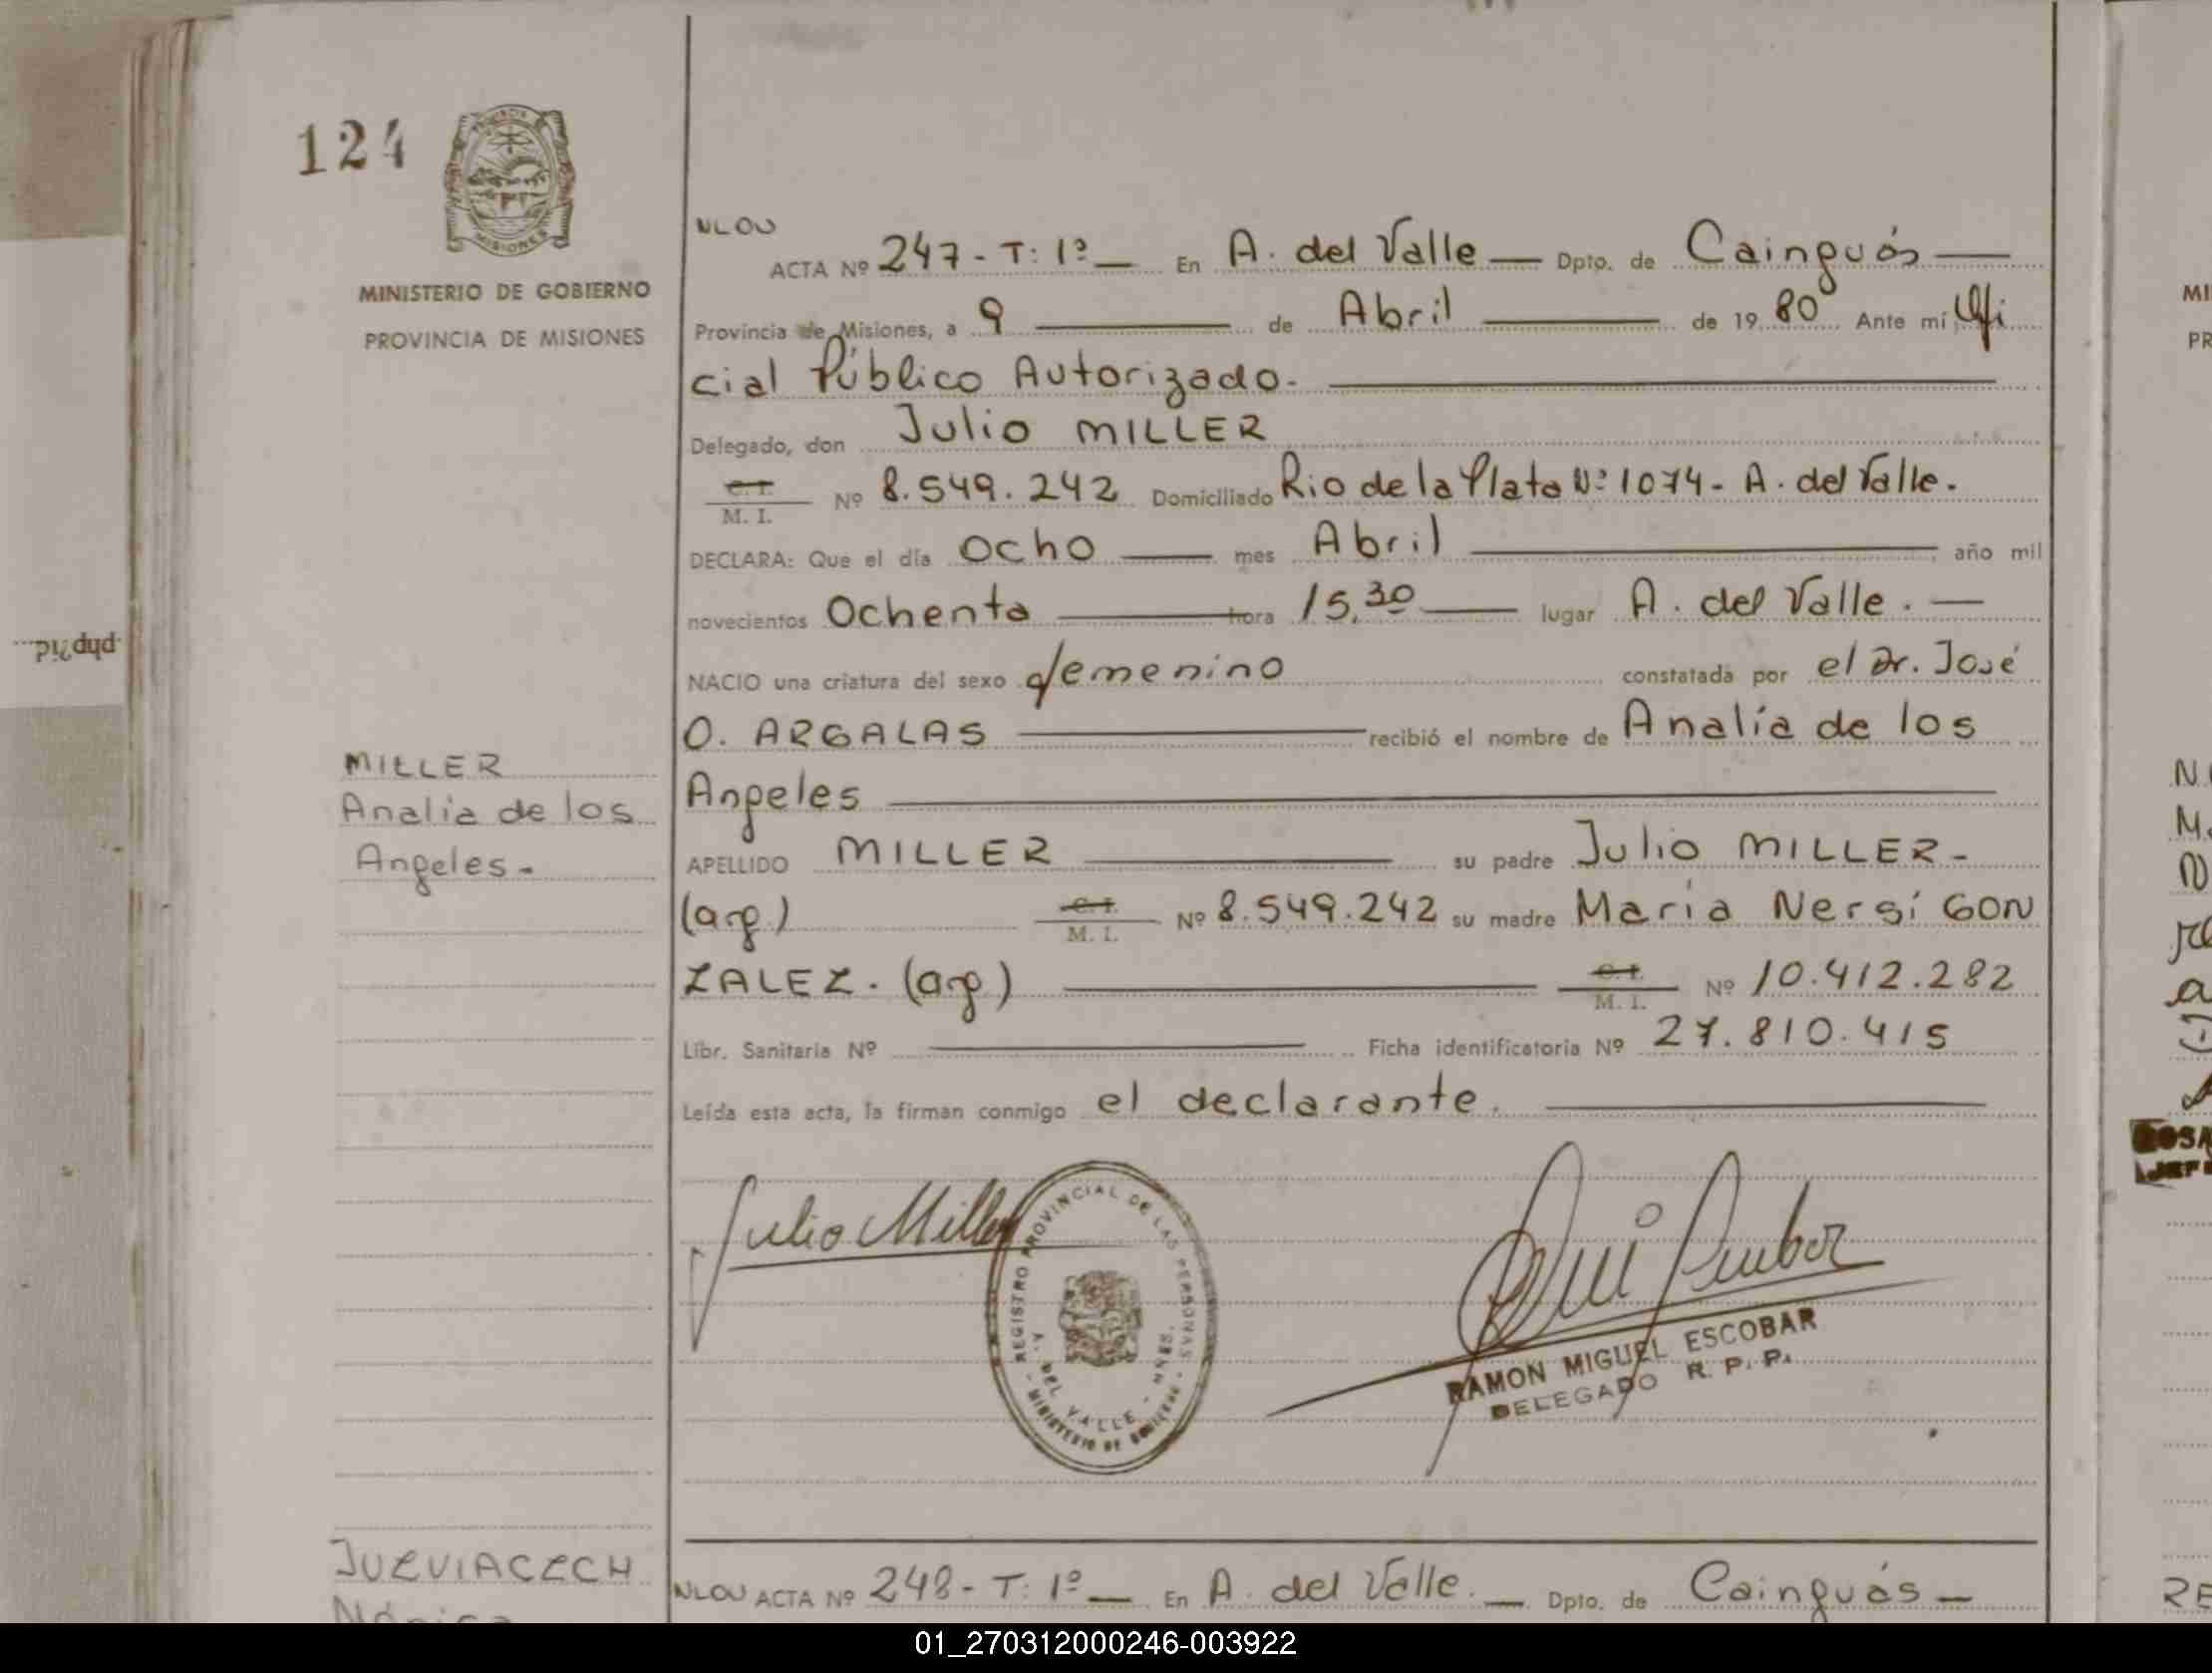 124
PROVINCIA DE MISIONES
MINISTERIO DE GOBIERNO
PROVINCIA DE MISIONES
NLOU
ACTA Nº 247 - T: 1º — En A. del Valle — Dpto. de Cainguás —
Provincia de Misiones, a 9 — de Abril — de 1980 Ante mi, Ofi
cial Público Autorizado. —
Delegado, don Julio MILLER
C. I. / M. I. Nº 8.549.242 Domiciliado Rio de la Plata Nº 1074 - A. del Valle.
DECLARA: Que el día Ocho — mes Abril — año mil
novecientos Ochenta — hora 15,30 — lugar A. del Valle. —
NACIO una criatura del sexo femenino constatada por el Dr. José
O. ARGALAS — recibió el nombre de Analía de los
Angeles —
APELLIDO MILLER — su padre Julio MILLER -
(arg.) C. I. / M. I. Nº 8.549.242 su madre María Nersí GON
ZALEZ. (arg) — C. I. / M. I. Nº 10.412.282
Libr. Sanitaria Nº — Ficha identificatoria Nº 27.810.415
Leída esta acta, la firman conmigo el declarante. —
MILLER
Analia de los
Angeles.-
Julio Miller
REGISTRO PROVINCIAL DE LAS PERSONAS
A. DEL VALLE - MNES.
- MINISTERIO DE GOBIERNO -
RAMON MIGUEL ESCOBAR
DELEGADO R. P. P.
JUZVIACZCH
Mónica
NLOU ACTA Nº 248 - T: 1º — En A. del Valle. — Dpto. de Cainguás —
.php?id...
01_270312000246-003922